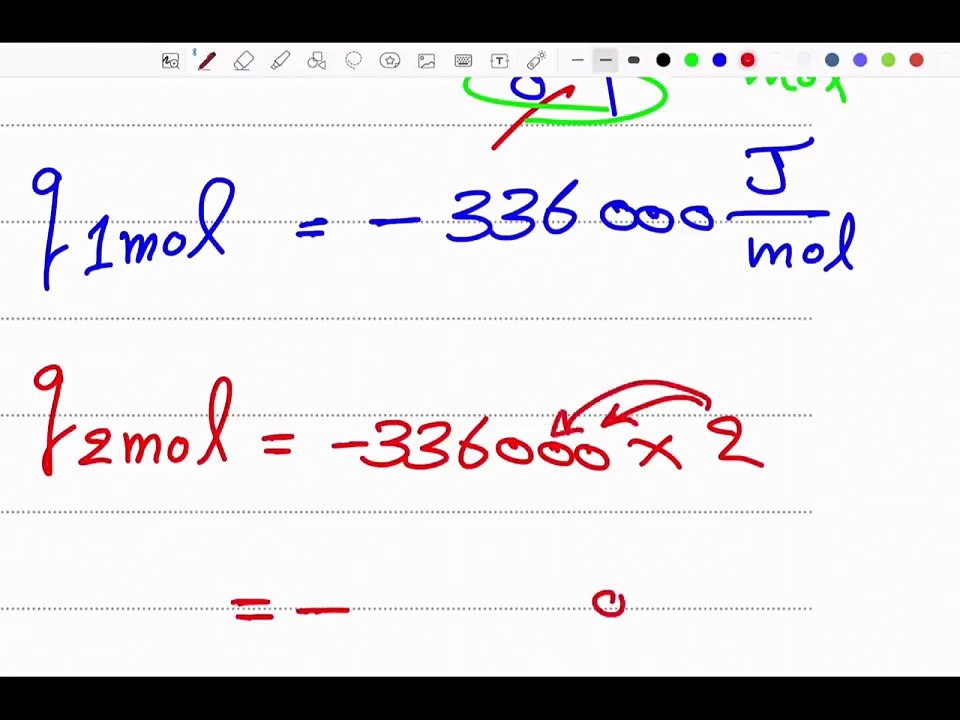 mol
q 1 mol = - 336 000 J/mol
q 2 mol = - 336000 × 2
= - 0